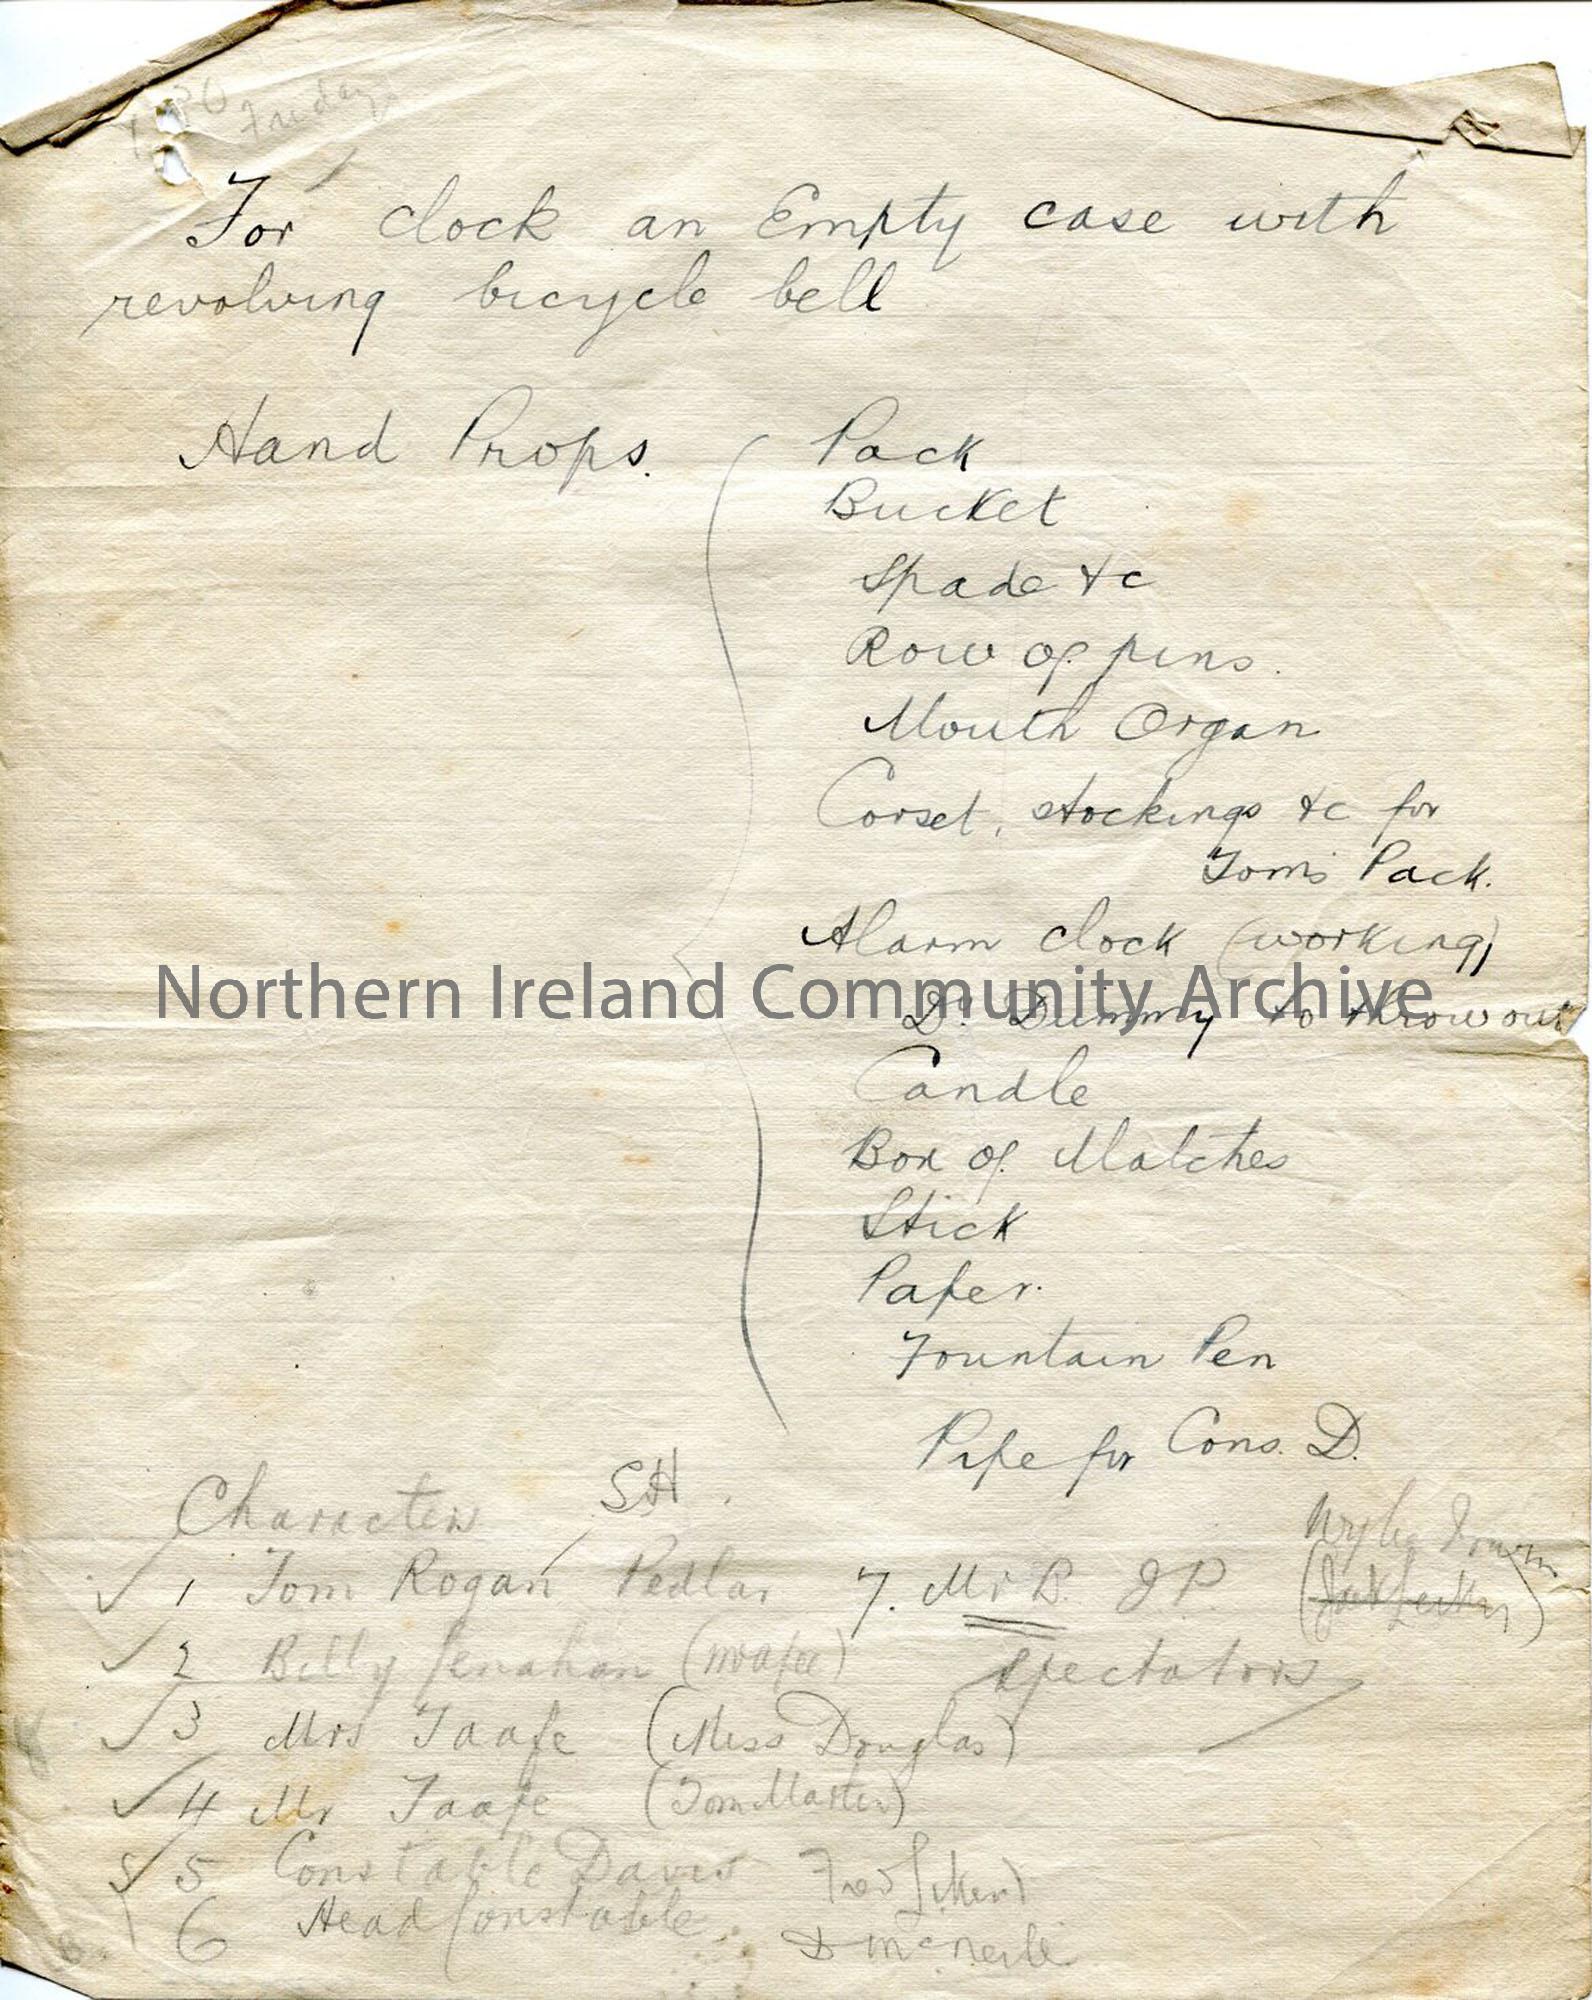 Friday
For clock an Empty case with
revolving bicycle bell
Hand Props.
Pack
Bucket
Spade &c
Row of pins.
Mouth Organ
Corset, stockings &c for
Tom's Pack.
Alarm clock (working)
Do. Dummy to throw out
Candle
Box of Matches
Stick
Paper.
Fountain Pen
Pipe for Cons. D.
Northern Ireland Community Archive
Characters SH.
1 Tom Rogan Pedlar
2 Billy Lenahan (McAfee)
3 Mrs Taafe (Miss Douglas)
4 Mr Taafe (Tom Martin)
5 Constable Davis
6 Head Constable D McNeile
7. Mr B. J P.
Spectators